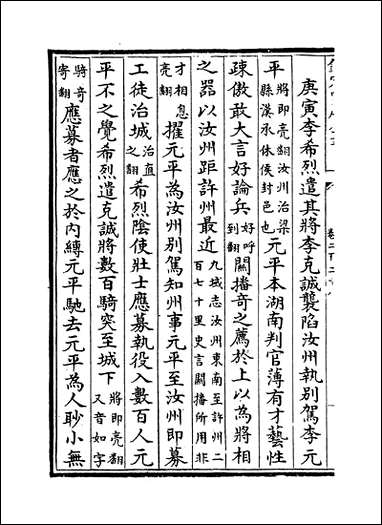 庚寅李希烈遣其將李克誠襲陷汝州執別駕李元
平將即亮翻汝州治梁縣漢承休侯封邑也元平本湖南判官薄有才藝性
疎傲敢大言好論兵好呼到翻關播奇之薦於上以為將相
之器以汝州距許州最近九域志汝州東南至許州二百七十里史言關播所用非
才相息亮翻擢元平為汝州別駕知州事元平至汝州即募
工徒治城治直之翻希烈陰使壯士應募執役入數百人元
平不之覺希烈遣克誠將數百騎突至城下將即亮翻又音如字
騎奇寄翻應募者應之於內縛元平馳去元平為人眇小無